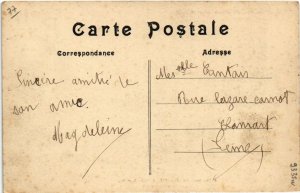 77
Carte Postale
Correspondance
Adresse
Sincère amitié de
son amie
Magdeleine
Melle Tantan
Rue Lazare Carnot
Clamart
(Seine)